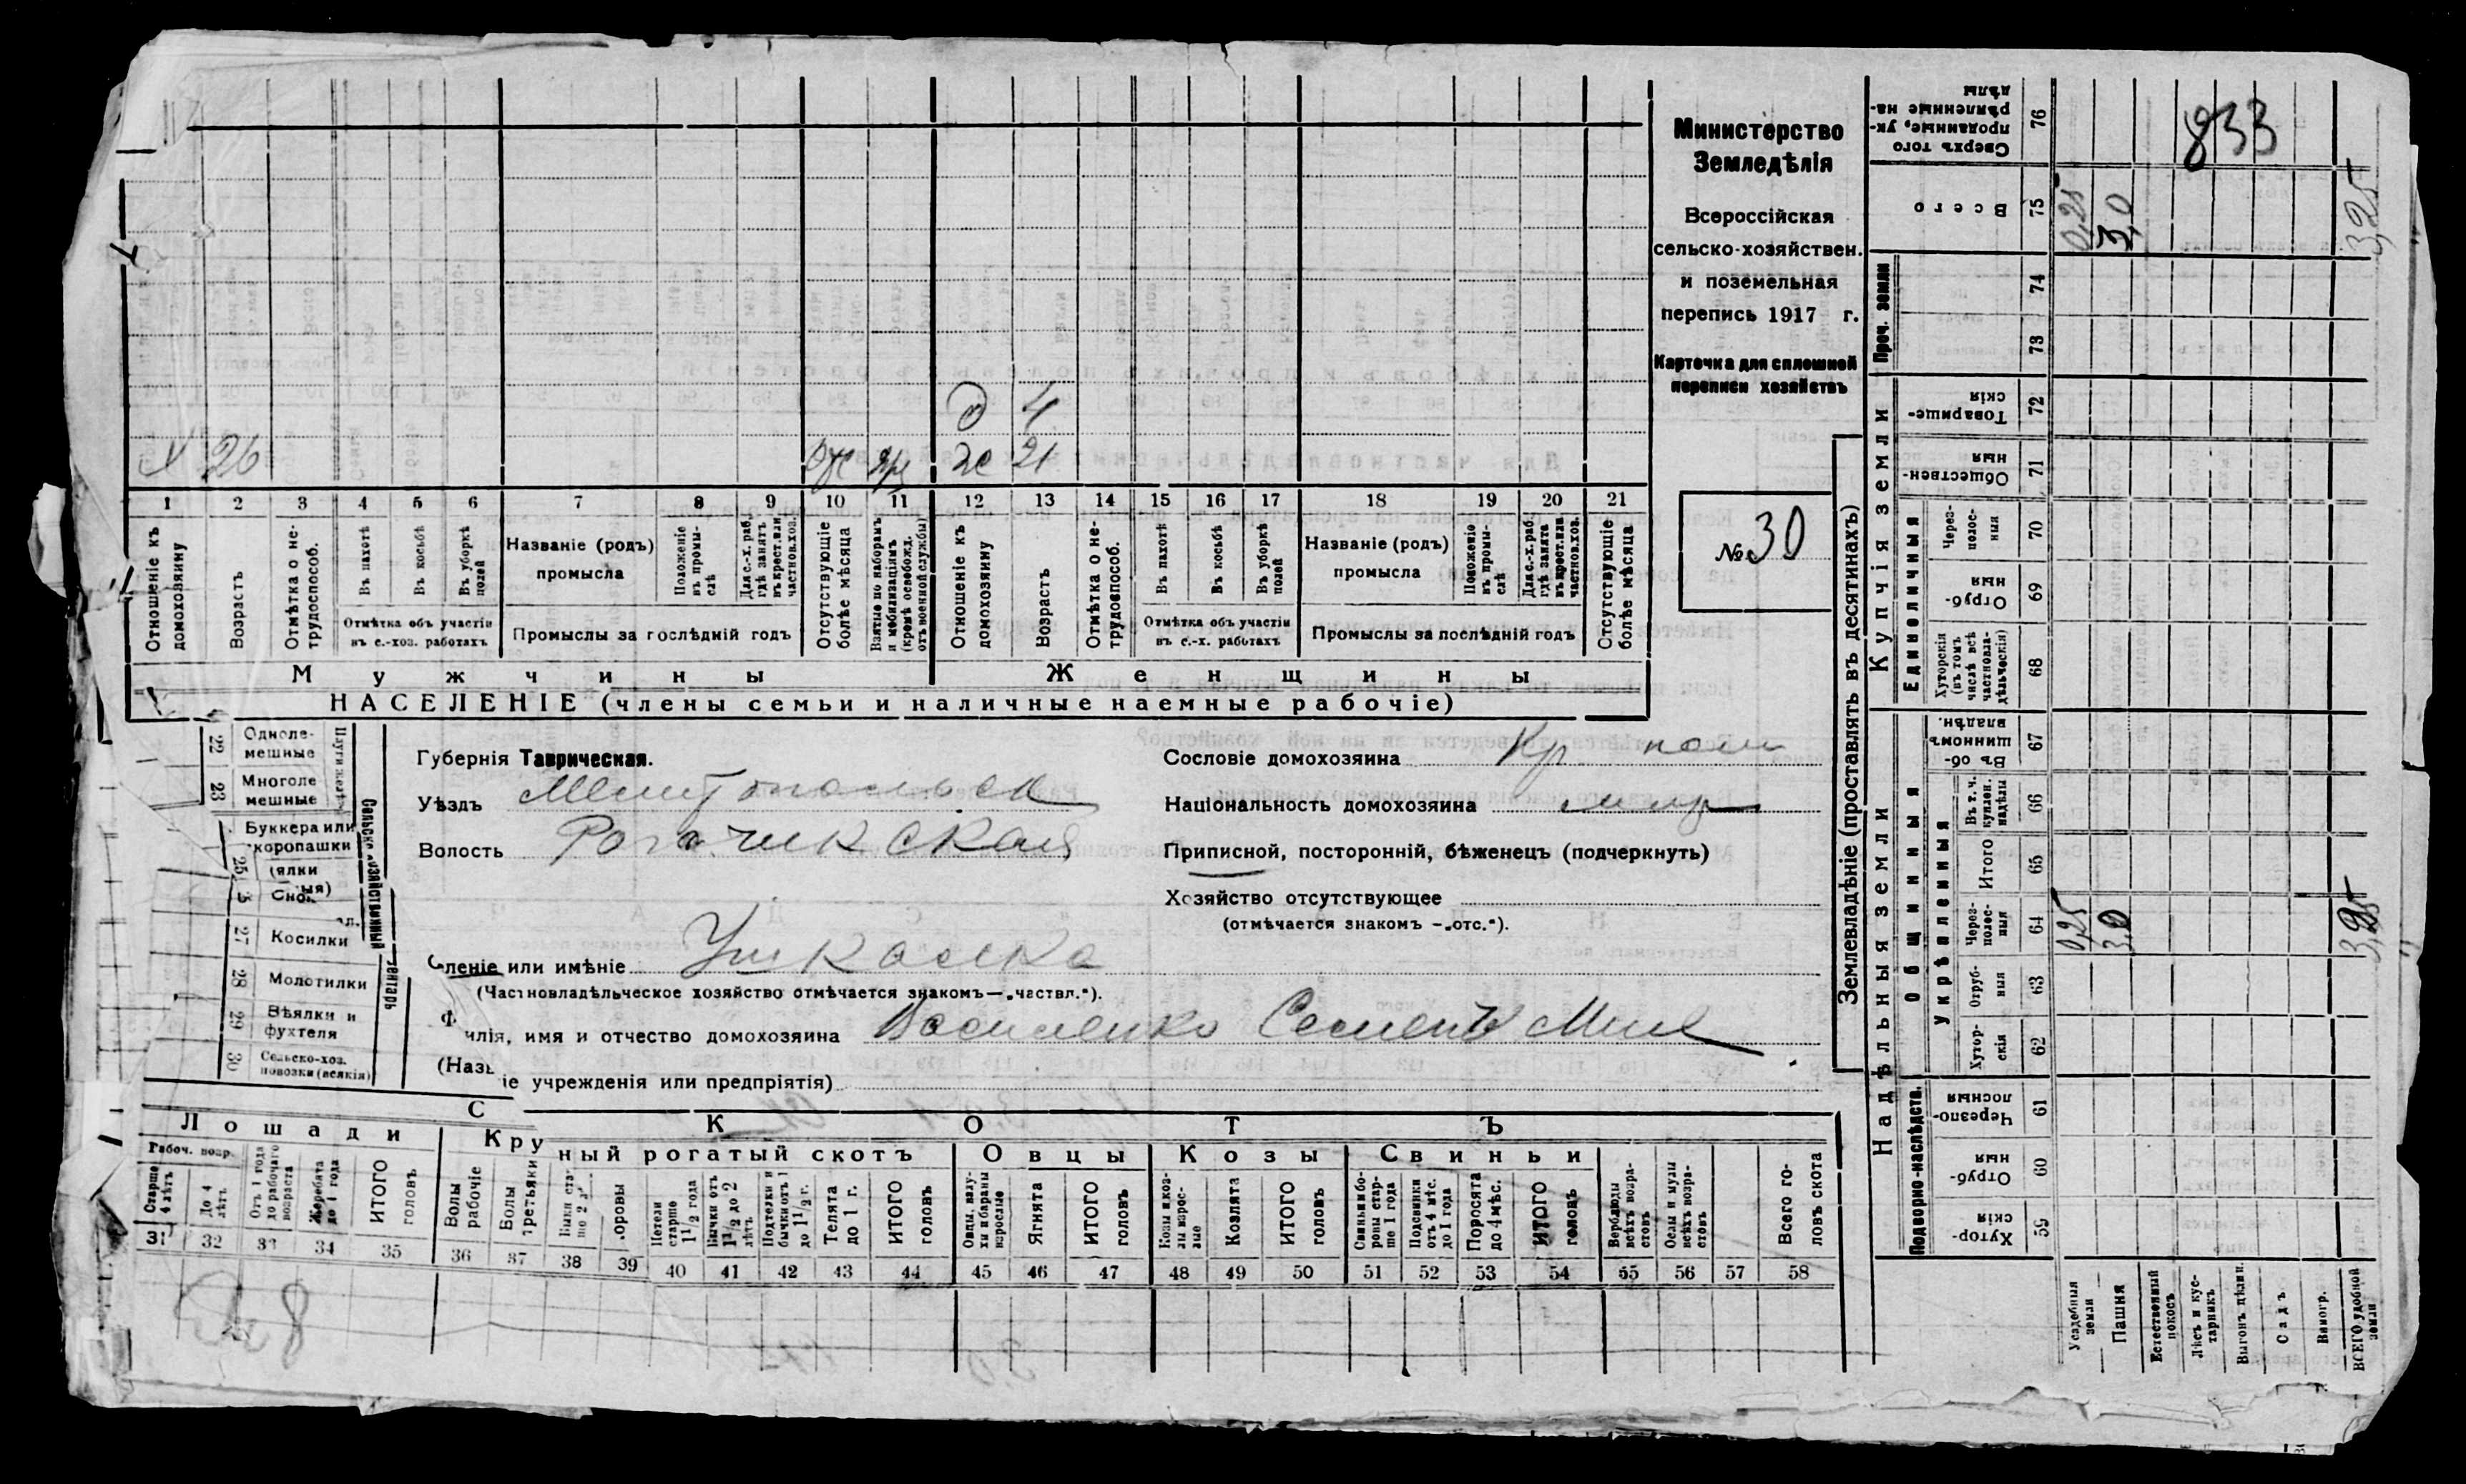 Министерство
Земледѣлія
Всероссійская
сельско-хозяйствен.
и поземельная
перепись 1917 г.
Карточка для сплошной
переписи хозяйствъ
№ 30
д 4
х 26 ж 21
1 2 3 4 5 6 7 8 9 10 11 12 13 14 15 16 17 18 19 20 21
Отношеніе къ домохозяину
Возрастъ
Отмѣтка о не-трудоспособ.
Въ пахотѣ
Въ косьбѣ
Въ уборкѣ полей
Отмѣтка объ участіи
въ с.-хоз. работахъ
Названіе (родъ)
промысла
Положеніе въ промы-слѣ
Для с.-х. раб. гдѣ занятъ въ крест. или частнов. хоз.
Промыслы за послѣдній годъ
Отсутствующіе болѣе мѣсяца
Взятые по наборамъ и мобилизаціямъ (кромѣ освобожд. отъ военной службы)
Отношеніе къ домохозяину
Возрастъ
Отмѣтка о не-трудоспособ.
Въ пахотѣ
Въ косьбѣ
Въ уборкѣ полей
Отмѣтка объ участіи
въ с.-х. работахъ
Названіе (родъ)
промысла
Положеніе въ промы-слѣ
Для с.-х. раб. гдѣ занята въ крест. или частнов. хоз.
Промыслы за послѣдній годъ
Отсутствующіе болѣе мѣсяца
Мужчины Женщины
НАСЕЛЕНІЕ (члены семьи и наличные наемные рабочіе)
22 Одноле-мешные
23 Многоле мешные
Буккера или
коропашки
25
27 Косилки
28 Молотилки
29 Вѣялки и фухтеля
30 Сельско-хоз. повозки (всякія)
Губернія Таврическая.
Уѣздъ Мелитопольск
Волость Рогачикская
леніе или имѣніе Ушкалка
(Частновладѣльческое хозяйство отмѣчается знакомъ—„частвл.“).
илія, имя и отчество домохозяина Василенко Семенъ Мих
(Наз іе учрежденія или предпріятія)
Сословіе домохозяина Кр
Національность домохозяина млр
Приписной, посторонній, бѣженецъ (подчеркнуть)
Хозяйство отсутствующее
(отмѣчается знакомъ —„отс.“).
СКОТЪ
Лошади Крупный рогатый скотъ Овцы Козы Свиньи
Рабоч. возр.
Старше 4 лѣтъ
До 4 лѣтъ
Отъ 1 года до рабочаго возраста
Жеребята до 1 года
ИТОГО головъ
Волы рабочіе
Волы третьяки
Быки ста ше 2 л
оровы
Нетели старше 1½ года
Бычки отъ 1½ до 2 лѣтъ
Подтелки и бычки отъ 1 до 1½ г.
Телята до 1 г.
ИТОГО головъ
Овцы, валу-хи и бараны взрослые
Ягнята
ИТОГО головъ
Козы и коз-лы взрос-лые
Козлята
ИТОГО головъ
Свиньи и бо-ровы стар-ше 1 года
Подсвинки отъ 4 мѣс. до 1 года
Поросята до 4 мѣс.
ИТОГО головъ
Верблюды всѣхъ возра-стовъ
Ослы и мулы всѣхъ возра-стовъ
Всего го-ловъ скота
31 32 33 34 35 36 37 38 39 40 41 42 43 44 45 46 47 48 49 50 51 52 53 54 55 56 57 58
Землевладѣніе (проставлять въ десятинахъ)
Надѣльныя земли Купчія земли Проч. земли
Подворно-наслѣдств. Общинныя Единоличныя
Укрѣпленныя
76 Сверхъ того проданные, ук-рѣпленные на-дѣлы 833
75 Всего 0,25 3,0 3,25
74
73
72 Товарище-скія
71 Обществен-ныя
70 Через-полос-ныя
69 Отруб-ныя
68 Хуторскія (въ томъ числѣ всѣ частновла-дѣльческія)
67 Въ об-щинномъ владѣн.
66 Въ т. ч. куплен. надѣлы
65 Итого
64 Через-полос-ныя 0,25 3,0 3,25
63 Отруб-ныя
62 Хутор-скія
61 Черезпо-лосныя
60 Отруб-ныя
59 Хутор-скія
Усадебныя земли
Пашня
Естественный покосъ
Лѣсъ и кус-тарникъ
Выгонъ дѣлин.
Садъ
Виногр.
ВСЕГО удобной земли